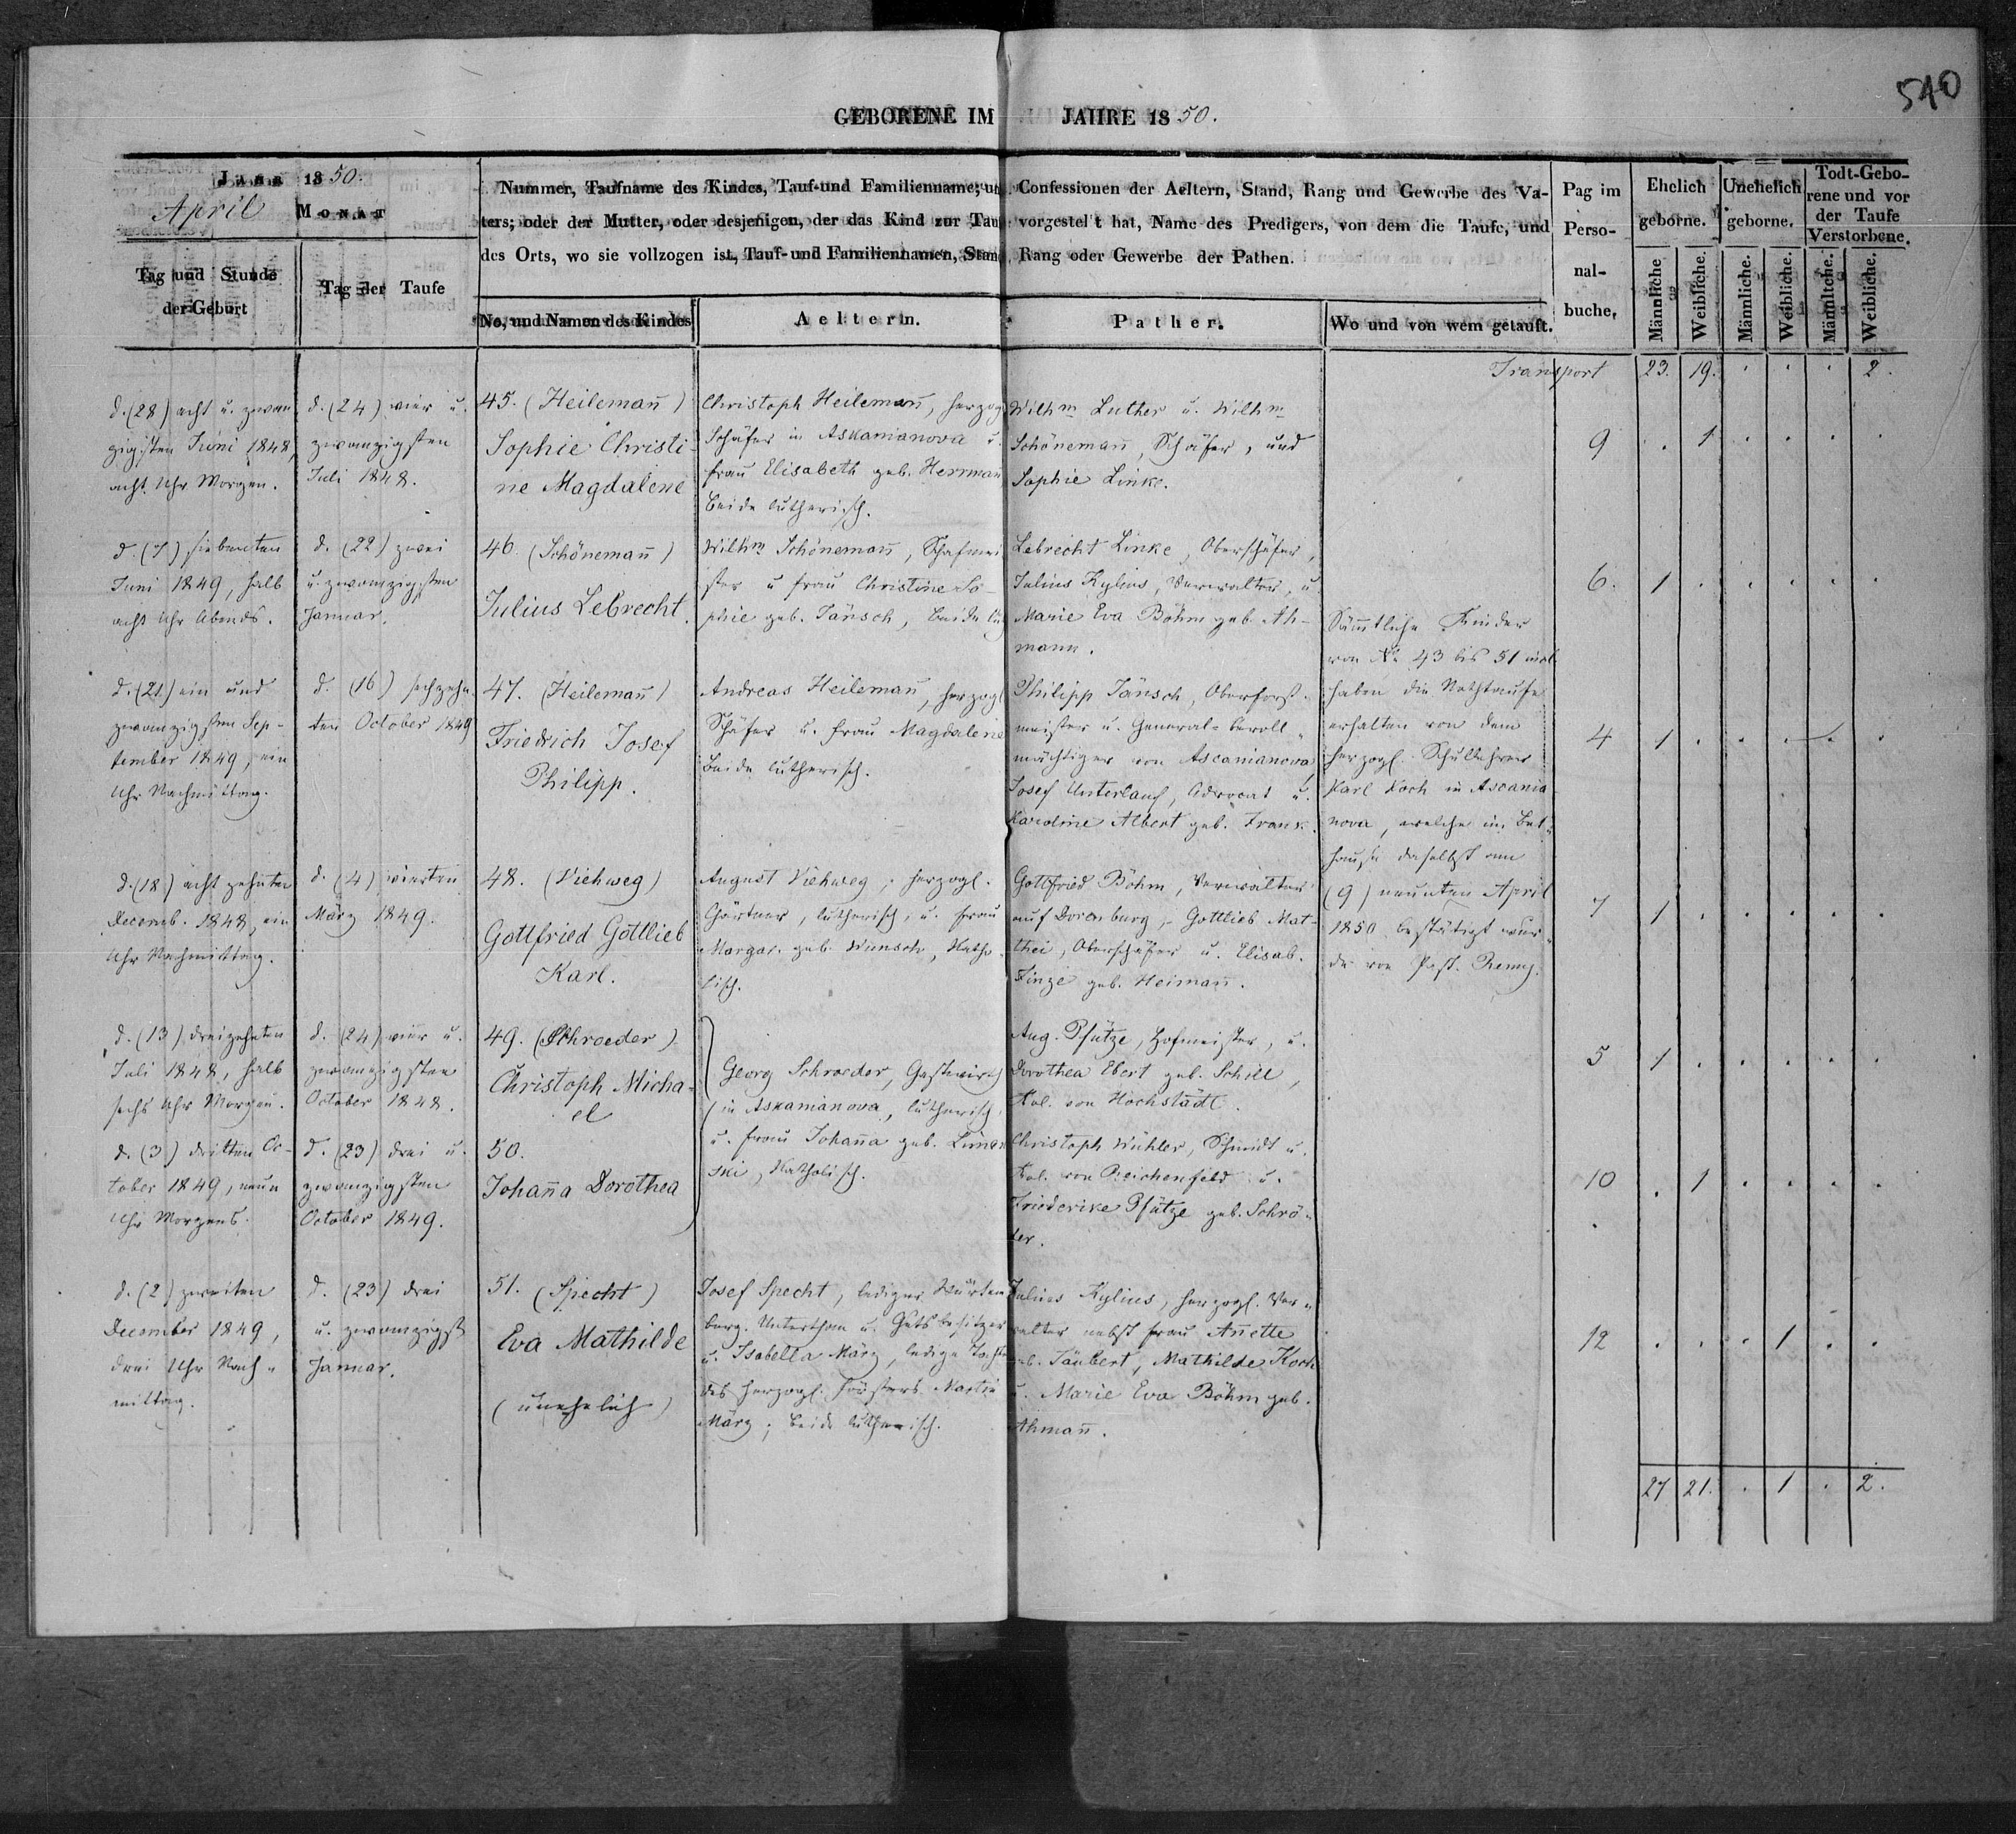 540
GEBORENE IM JAHRE 1850.
JAHR 1850.
April MONAT
Tag und Stunde
der Geburt
Tag der Taufe
Nummer, Taufname des Kindes, Tauf-und Familienname; und Confessionen der Aeltern, Stand, Rang und Gewerbe des Va-
ters; oder der Mutter, oder desjenigen, der das Kind zur Taufe vorgestel't hat, Name des Predigers, von dem die Taufe, und
des Orts, wo sie vollzogen ist, Tauf-und Familiennamen, Stand, Rang oder Gewerbe der Pathen.
No, und Namen des Kindes
Aeltern.
Pather.
Wo und von wem getauft.
Pag im
Perso-
nal-
buche,
Ehelich
geborne.
Unehelich
geborne.
Todt-Gebo-
rene und vor
der Taufe
Verstorbene.
Männliche
Weibliche.
Männliche.
Weibliche.
Männliche.
Weibliche.
Transport 23. 19. . . . 2.
d. (28) acht u. zwan
zigsten Juni 1848,
acht Uhr Morgen.
d. (24) vier u.
zwanzigsten
Juli 1848.
45. (Heilemañ)
Sophie Christi-
ne Magdalene
Christoph Heilemañ, herzog
Schäfer in Askanianova u.
Frau Elisabeth geb. Herrmañ,
beide lutherisch.
Wilhm Luther u. Wilhm
Schönemañ, Schäfer, und
Sophie Linke.
9 . 1 . . . .
d. (7) siebenten
Juni 1849, halb
acht Uhr Abends.
d. (22) zwei
u. zwanzigsten
Januar.
46. (Schönemañ)
Julius Lebrecht.
Wilhm Schönemañ, Schafmei
ster u Frau Christine So-
phie geb. Jänsch, beide lu
Lebrecht Linke, Oberschäfer,
Julius Kylius, Verwalter, u.
Marie Eva Böhm geb. Ah-
mann.
6. 1 . . . . .
Sämtliche Kinder
von No 43 bis 51 incl.
haben die Nothtaufe
erhalten von dem
herzogl. Schullehrer
Karl Koch in Ascania
nova, welche im Bet-
hause daselbst am
(9) neunten April
1850 bestätigt wur-
de von Past. Remy.
d. (21) ein und
zwanzigsten Sep-
tember 1849, ein
Uhr Nachmittag.
d. (16) sechzehn
ten October 1849
47. (Heilemañ)
Friedrich Josef
Philipp.
Andreas Heilemañ, herzogl
Schäfer u. Frau Magdalene
beide lutherisch.
Philipp Jänsch, Oberforst-
meister u. General-bevoll-
mächtiger von Ascanianova,
Josef Unterlauf, Advocat u.
Karoline Albert geb. Frank.
4 1 . . . . .
d. (18) acht zehnten
Decemb. 1848, ein
Uhr Nachmittag.
d. (4) vierten
März 1849.
48. (Viehweg)
Gottfried Gottlieb
Karl.
August Viehweg, herzogl.
Gärtner, lutherisch, u. Frau
Margar. geb. Wunsch, Katho-
lisch.
Gottfried Böhm, Verwalter
auf Dorenburg, Gottlieb Mat-
thei, Oberschäfer u. Elisab.
Finze geb. Heimañ.
7 1 . . . . .
d. (13) dreizehnten
Juli 1848, halb
sechs Uhr Morgen.
d. (24) vier u.
zwanzigsten
October 1848.
49. (Schroeder)
Christoph Micha-
el
Georg Schroeder, Gastwirth
in Askanianova, lutherisch,
u. Frau Johaña geb.
ski, Katholisch.
Aug. Pfütze, Hofmeister, u.
Dorothea Ebert geb. Schill,
Kol. von Hochstädt.
5 1 . . . . .
d. (3) dritten Oc-
tober 1849, neun
Uhr Morgens.
d. (23) drei u.
zwanzigsten
October 1849.
50.
Johaña Dorothea
Christoph Wühler, Schmidt u.
Kol. von Reichenfeld u.
Friederike Pfütze geb. Schrö-
der.
10 . 1 . . . .
d. (2) zweiten
December 1849,
drei Uhr Nach-
mittag.
d. (23) drei
u. zwanzigst
Januar.
51. (Specht)
Eva Mathilde
(unehelich)
Josef Specht, lediger Würtem
berg. Unterthan u. Gutsbesitzer
u. Isabella März, ledige Tocht
des herzogl. Försters Martin
März; beide lutherisch.
Julius Kylius, herzogl. Ver-
walter nebst Frau Añette
geb. Täubert, Mathilde Koch
u. Marie Eva Böhm geb.
Ahmañ.
12 . . . 1 . .
27 21. . 1 . 2.